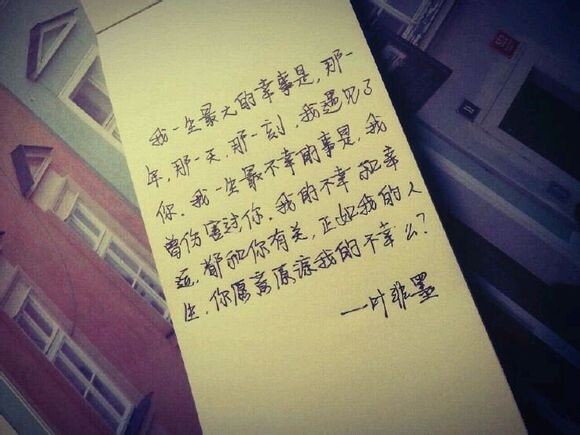 我一生最大的幸事是,那一
年,那一天,那一刻,我遇见了
你。我一生最不幸的事是,我
曾伤害过你。我的不幸和幸
运,都和你有关,正如我的人
生,你愿意原谅我的不幸么?
——叶非墨